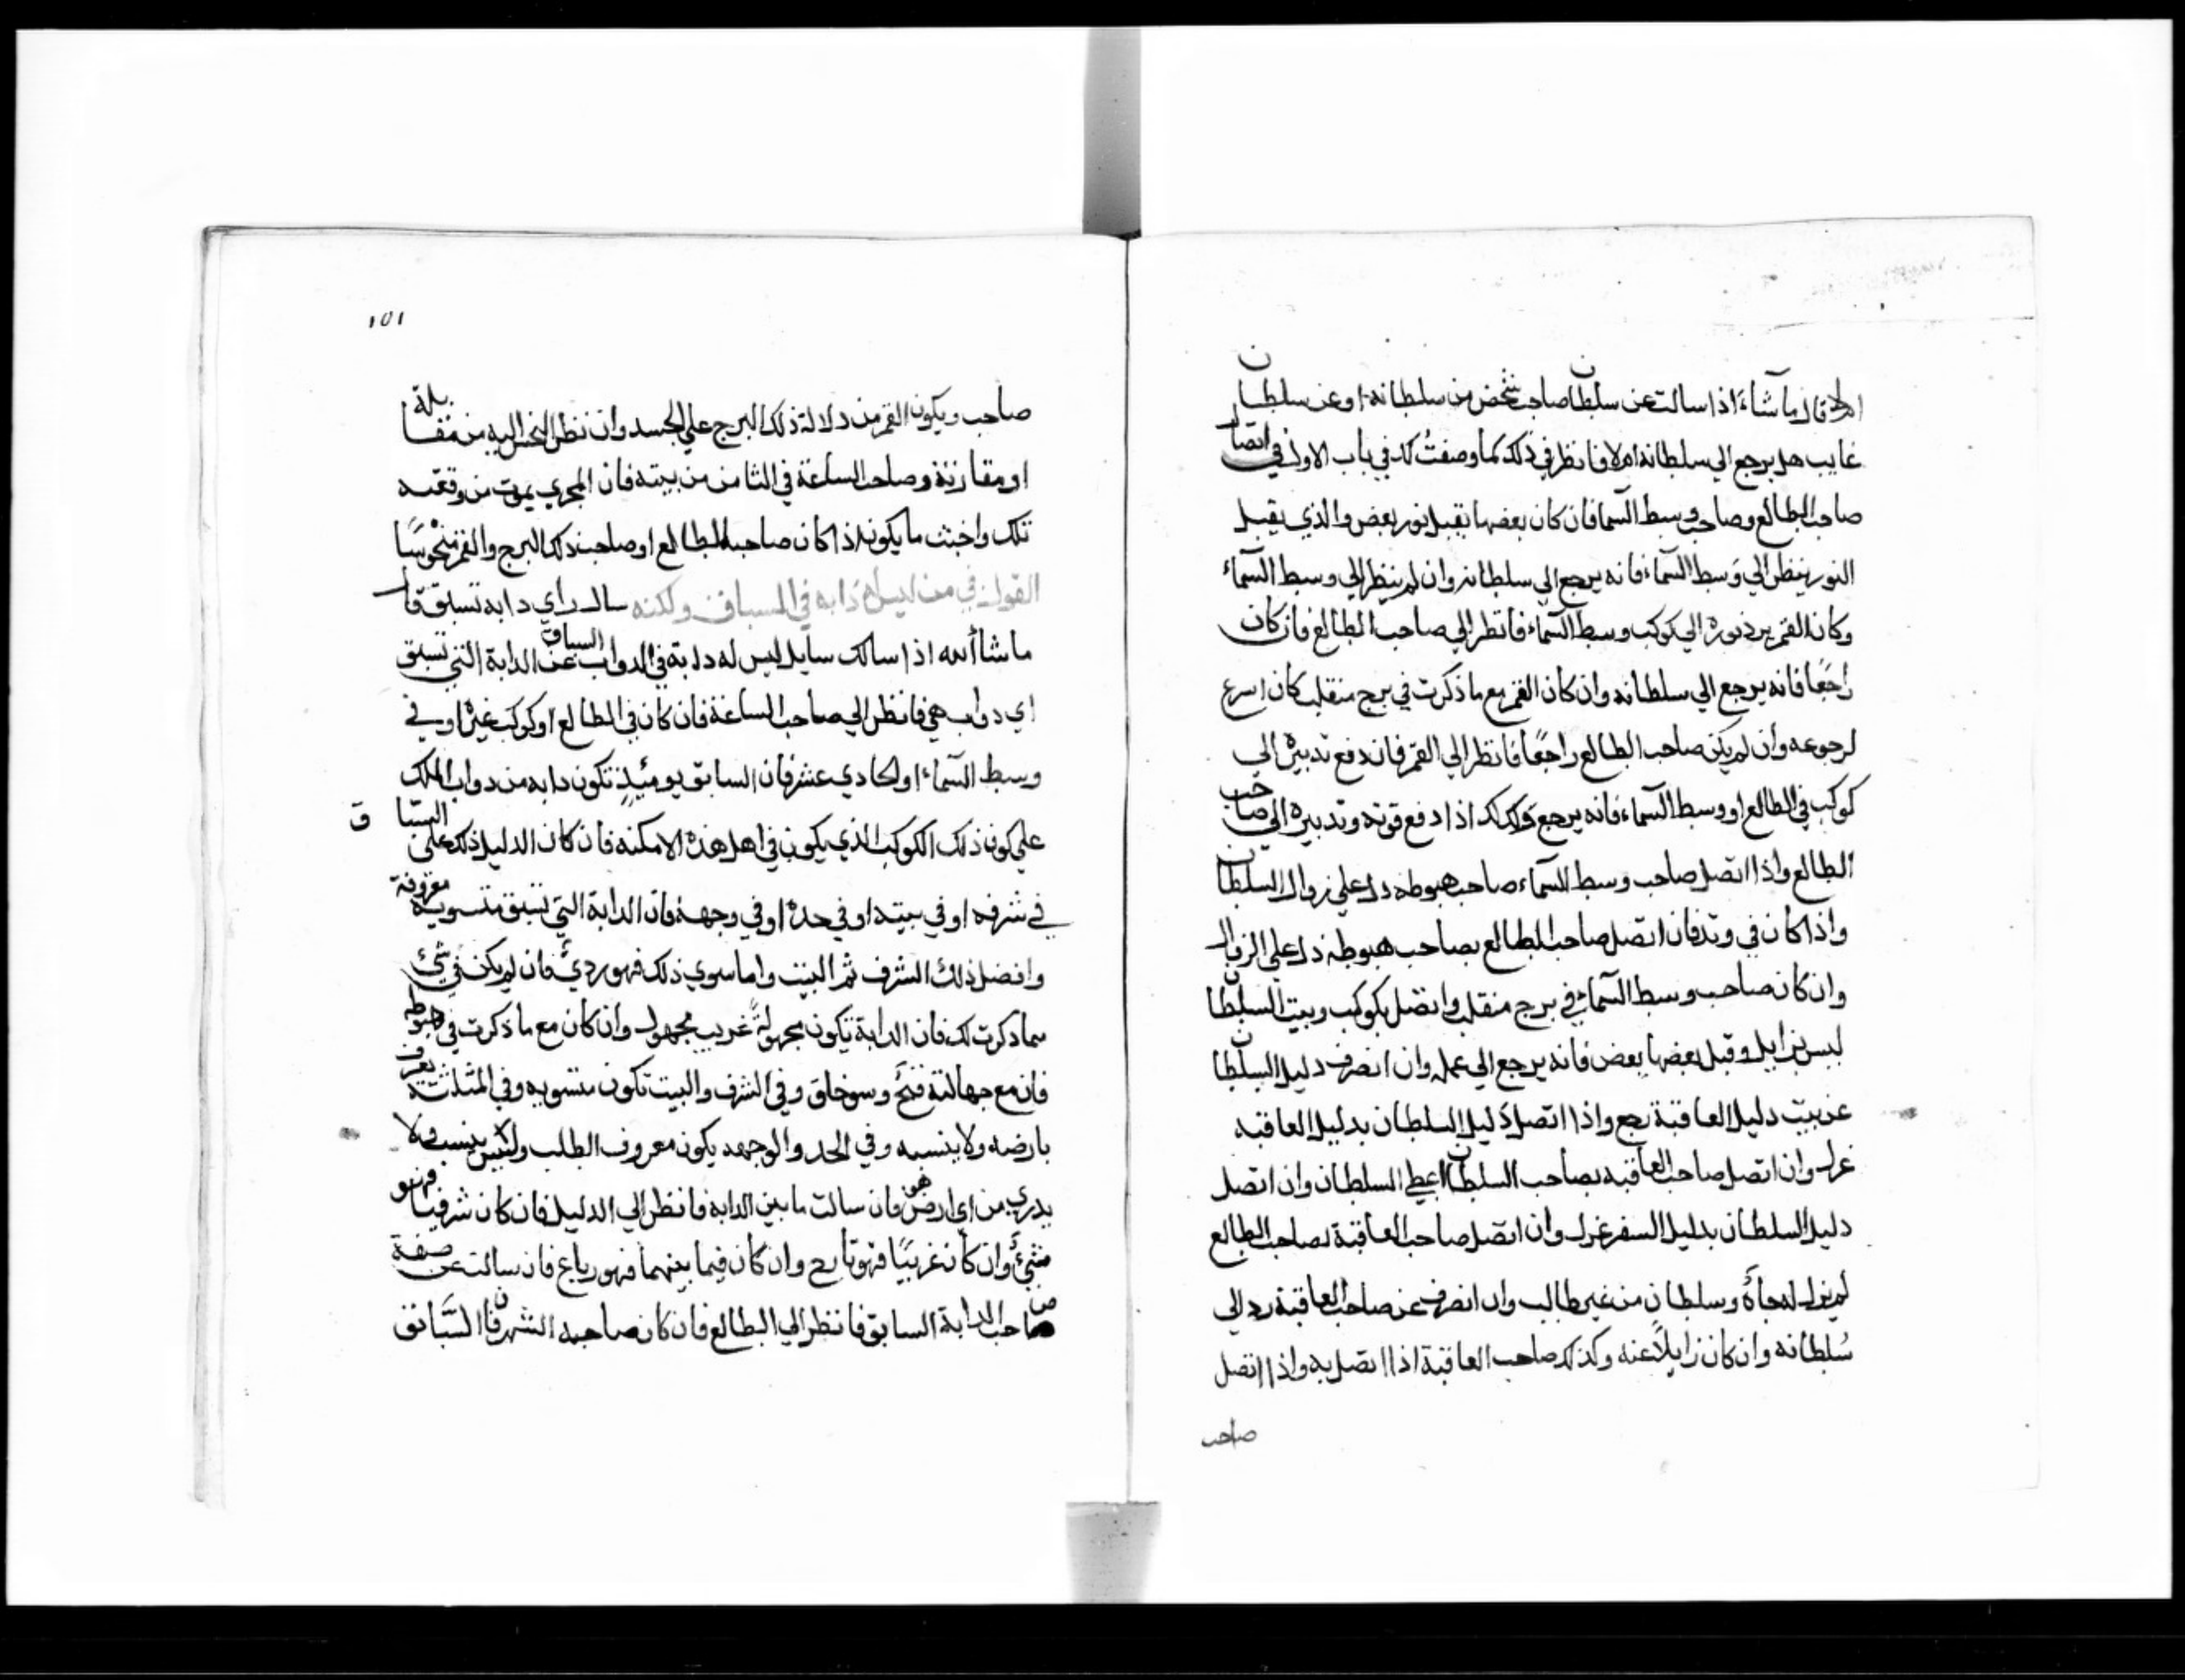 ام لا قال ماشاء اذا سالت عن سلطان صاحب شخص من سلطانه او عن سلطان
غايب هل يرجع الي سلطانه ام لا فانظر في ذلك كما وصفت لك في باب الاول في اتصال
صاحب الطالع وصاحب وسط السما فان كان بعضها يقبل نور بعض والذي يقبل
النور ينظر الي وسط السماء فانه يرجع الي سلطانه وان لم ينظر الي وسط السماء
وكان القمر يرد نوره الي كوكب وسط السماء فانظر الي صاحب الطالع فان كان
راجعا فانه يرجع الي سلطانه وان كان القمر مع ما ذكرت في برج منقلب كان اسرع
لرجوعه وان لم يكن صاحب الطالع راجعا فانظر الي القمر فان دفع تدبيره الي
كوكب في الطالع او وسط السماء فانه يرجع وكذلك اذا دفع قوته وتدبيره الي صاحب
الطالع واذا اتصل صاحب وسط السماء صاحب هبوطه دل علي زوال السلطان
واذا كان في وتد فان اتصل صاحب الطالع بصاحب هبوطه دل علي الزوال
وان كان صاحب وسط السماء في برج منقلب واتصل بكوكب وبيت السلطان
ليس بزايل وقبل بعضها بعض فانه يرجع الي عمله وان انصرف دليل السلطان
عن بيت دليل العاقبة رجع واذا اتصل دليل السلطان بدليل العاقبه
عزل وان اتصل صاحب العاقبه بصاحب السلطان اعطي السلطان وان اتصل
دليل السلطان بدليل السفر عزل وان اتصل صاحب العاقبة بصاحب الطالع
لم يزل له جاه وسلطان من غير طالب وان انصرف عن صاحب العاقبة رد الي
سلطانه وان كان زايلا عنه وكذلك صاحب العاقبة اذا اتصل به واذا اتصل
صاحب
١٥١
صاحب ويكون القمر من دلالة ذلك البرج علي الجسد وان نظر النحس اليه من مقابلة
او مقارنة وصاحب الساعة في الثامن من بيته فان المجري يموت من وقعته
تلك واخبث ما يكون اذا كان صاحب الطالع او صاحب ذلك البرج والقمر منحوسا
القول في من ليس له دابه في المسباق ولكنه سال راي دابه تسبق قال
ما شاألله اذا سالك سايل ليس له دابة في الدواب السباق عن الدابة التي تسبق
اي دواب هي فانظر الي صاحب الساعة فان كان في الطالع او كوكب غيره او في
وسط السماء او الحادي عشر فان السابق يومئذ تكون دابه من دواب الملك
علي كون ذلك الكوكب الذي يكون في اهل هذه الامكنه فان كان الدليل ذلك علي السباق
في شرفه او في بيته او في حده او في وجهه فان الدابة التي تسبق منسوبة معروفة
وافضل ذلك الشرف ثم البيت واما سوي ذلك فهو ردي فان لم يكن في شئ
مما ذكرت لك فان الدابة تكون مجهولة غريب مجهول وان كان مع ما ذكرت في هبوطه
فان مع جهالته قبح وسو خلق وفي الشرف والبيت تكون منسوبه وفي المثلثة يعرف
بارضه ولا ينسبه وفي الحد والوجه يكون معروف الطلب وليس ينسب ولا
يدري من اي ارض هو فان سالت ما بين الدابة فانظر الي الدليل فان كان شرقيا فهو
مثني وان كان غربيا فهو قارح وان كان فيما بينهما فهو رباع فان سالت عن صفة
صاحب الدابة السابق فانظر الي الطالع فان كان صاحبه الشرقا السابق